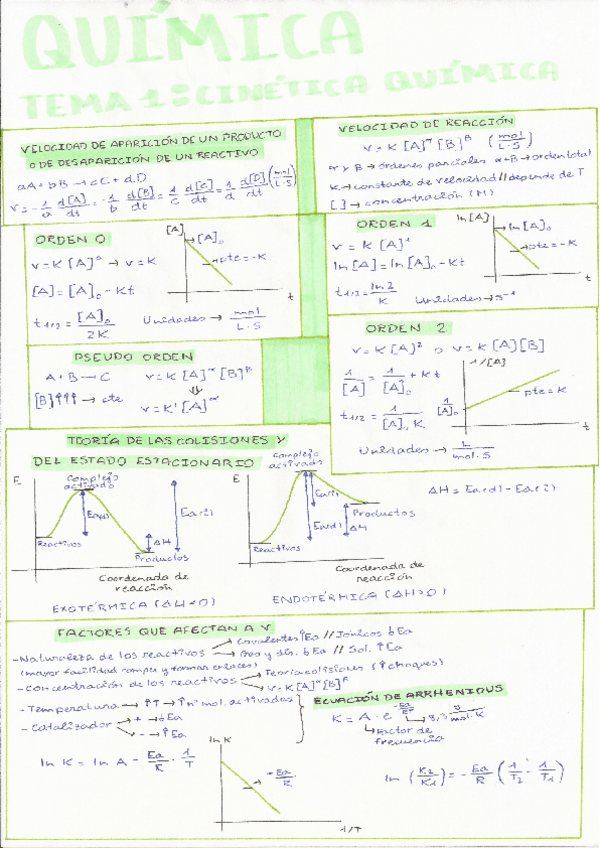 QUÍMICA
TEMA 1: CINÉTICA QUÍMICA
VELOCIDAD DE APARICIÓN DE UN PRODUCTO
O DE DESAPARICIÓN DE UN REACTIVO
aA + bB → cC + dD
v = -1/a d[A]/dt = -1/b d[B]/dt = 1/c d[C]/dt = 1/d d[D]/dt (mol/L·S)
VELOCIDAD DE REACCIÓN
v = K [A]^α [B]^β (mol/L·S)
α y β → órdenes parciales α+β → orden total
K → constante de velocidad // depende de T
[ ] → concentración (M)
ORDEN 0
v = K [A]⁰ → v = K
[A] = [A]₀ - Kt
t1/2 = [A]₀/2K
Unidades → mol/L·S
[A]
[A]₀
pte = -K
t
ORDEN 1
v = K [A]¹
ln [A] = ln [A]₀ - Kt
t1/2 = ln 2/K
Unidades → S⁻¹
ln [A]
ln [A]₀
pte = -K
t
PSEUDO ORDEN
A + B → C
v = K [A]^α [B]^β
[B]↑↑↑ → cte
⇓
v = K' [A]^α
ORDEN 2
v = K [A]² o v = K [A][B]
1/[A] = 1/[A]₀ + Kt
t1/2 = 1/[A]₀ K
Unidades → L/mol·S
1/[A]
1/[A]₀
pte = K
t
TEORÍA DE LAS COLISIONES Y
DEL ESTADO ESTACIONARIO
E
Complejo
activado
Ea(d)
Ea(i)
ΔH
Reactivos
Productos
Coordenada de
reacción
EXOTÉRMICA (ΔH<0)
E
Complejo
activado
Ea(i)
Ea(d)
ΔH
Productos
Reactivos
Coordenada de
reacción
ENDOTÉRMICA (ΔH>0)
ΔH = Ea(d) - Ea(i)
FACTORES QUE AFECTAN A V
- Naturaleza de los reactivos → Covalentes ↑Ea // Iónicos ↓Ea
→ Gas y dis. ↓Ea // Sol. ↑Ea
(mayor facilidad romper y formar enlaces)
- Concentración de los reactivos → Teoría colisiones (↑choques)
→ v = K [A]^α [B]^β
- Temperatura → ↑T → ↑nº mol. activadas
- Catalizador → + → ↓Ea
→ - → ↑Ea
ECUACIÓN DE ARRHENIOUS
K = A · e^(-Ea/RT)
→ 8,3 J/mol·K
→ Factor de
frecuencia
ln K = ln A - Ea/R · 1/T
ln K
-Ea/R
1/T
ln (K2/K1) = - Ea/R (1/T2 - 1/T1)